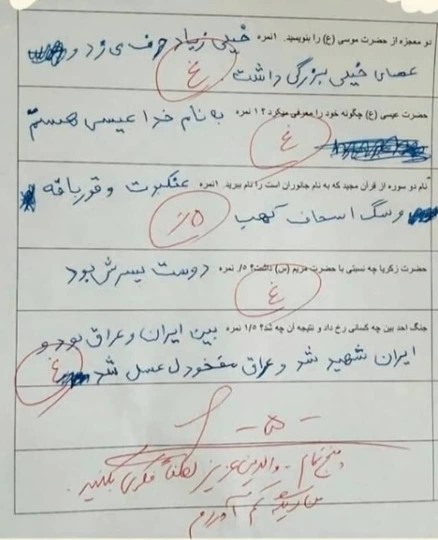 دو معجزه از حضرت موسی (ع) را بنویسید. ۱نمره خیلی زیاد حرف می زد و
عصای خیلی بزرگی داشت. غ
حضرت عیسی (ع) چگونه خود را معرفی میکرد؟ ۱ نمره به نام خدا عیسی هستم
غ
نام دو سوره از قران مجید که به نام جانوران است را نام ببرید. ۱نمره عنکبوت و قورباقه
و سگ اسحاف کهب ۵٪
حضرت زکریا چه نسبتی با حضرت مریم (س) داشت؟ ۵/. نمره دوست پسرش بود
غ
جنگ احد بین چه کسانی رخ داد و نتیجه آن چه شد؟ ۱/۵ نمره بین ایران و عراق بود و
ایران شهید شد و عراق مفخودل عسل شد غ
- ۵ -
پنج تمام - والدین عزیز لطفاً فکری بکنید.
من دیگه کم آوردم